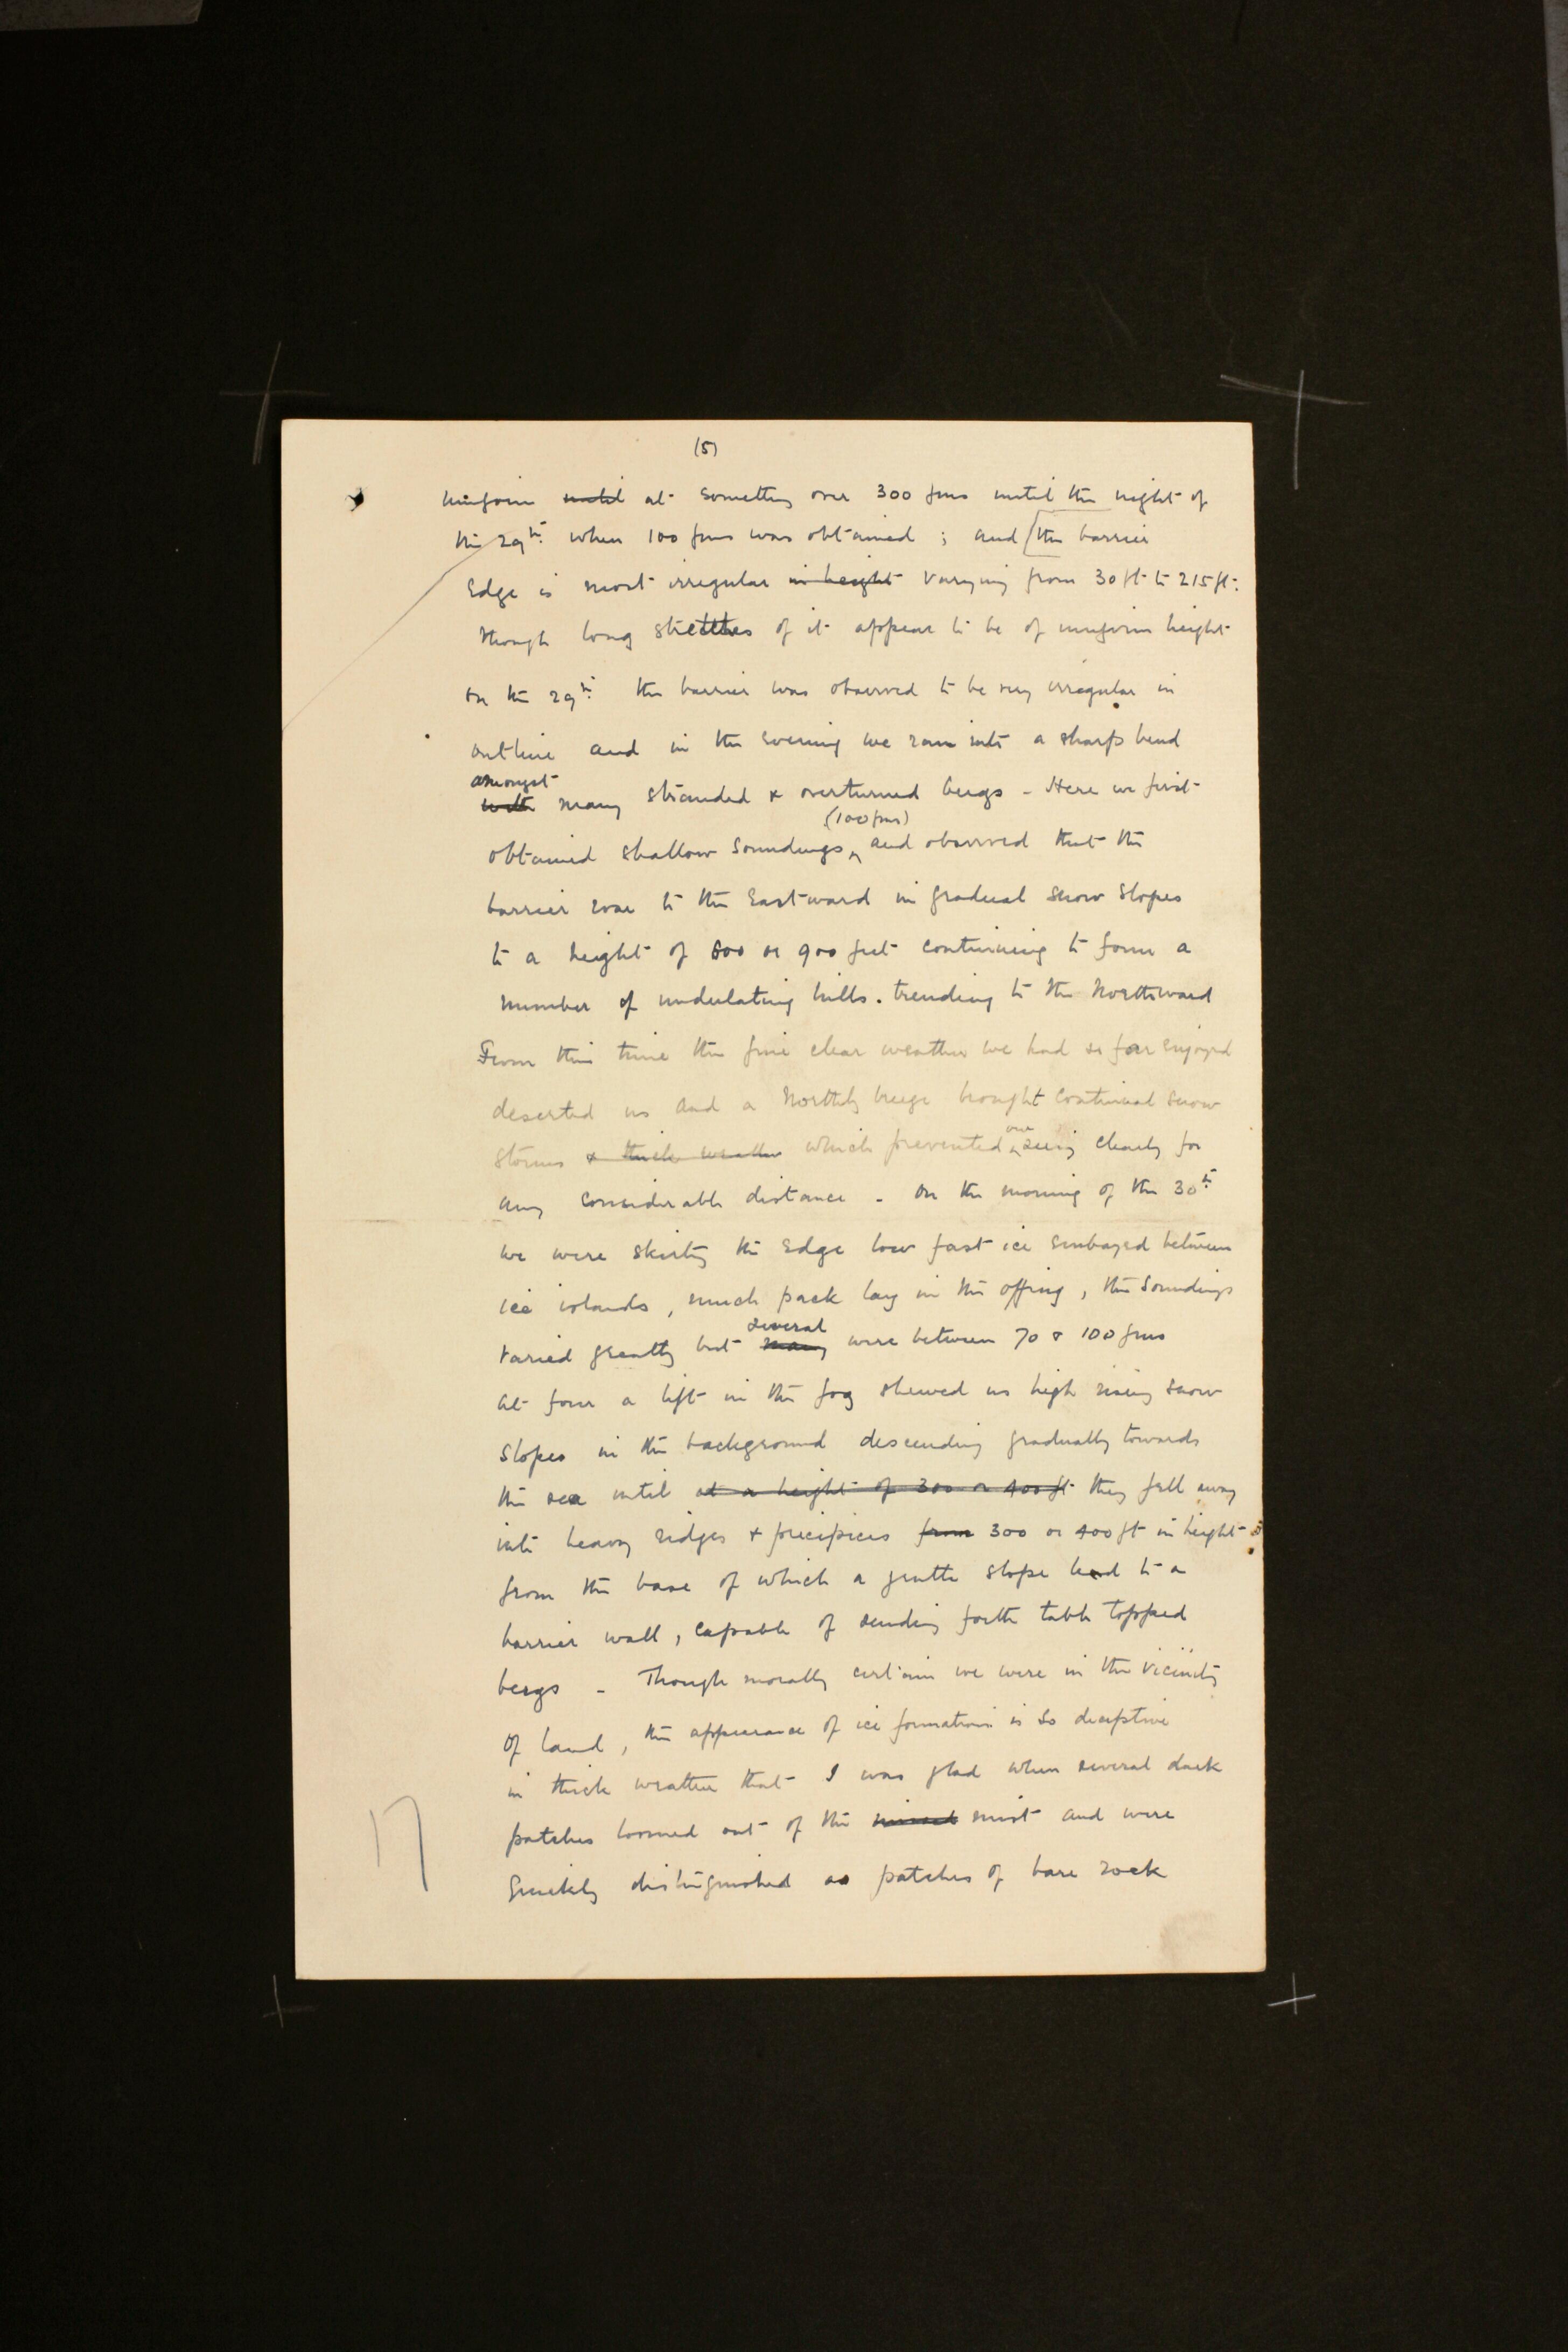 (5)
uniform until at something over 300 fms until the night of
the 29th. when 100 fms was obtained ; and [the barrier
Edge is most irregular in height varying from 30 ft to 215 ft.
though long stretches of it appear to be of uniform height
On the 29th. the barrier was observed to be very irregular in
outline and in the Evening we ran into a sharp bend
amongst
with many stranded & overturned bergs - Here we first
(100 fms)
obtained shallow soundings, and observed that the
barrier rose to the Eastward in gradual snow slopes
to a height of 800 or 900 feet continuing to form a
number of undulating hills. trending to the Northward
From this time the fine clear weather we had so far enjoyed
deserted us and a Northly breeze brought continual snow
our
storms & thick weather which prevented seeing clearly for
any considerable distance - On the morning of the 30th.
we were skirting the Edge low fast ice Embayed between
ice islands, much pack lay in the offing, the Soundings
several
varied greatly but many were between 70 & 100 fms
At four a lift in the fog shewed us high rising snow
slopes in the background descending gradually towards
the sea until at a height of 300 or 400 ft they fell away
into heavy ridges & precipices from 300 or 400 ft in height
from the base of which a gentle slope lead to a
barrier wall, capable of sending forth table topped
bergs - Though morally certain we were in the vicinity
Of land, the appearance of ice formation is so deceptive
in thick weather that I was glad when several dark
patches loomed out of the mist and were
quickly distinguished as patches of bare rock
17